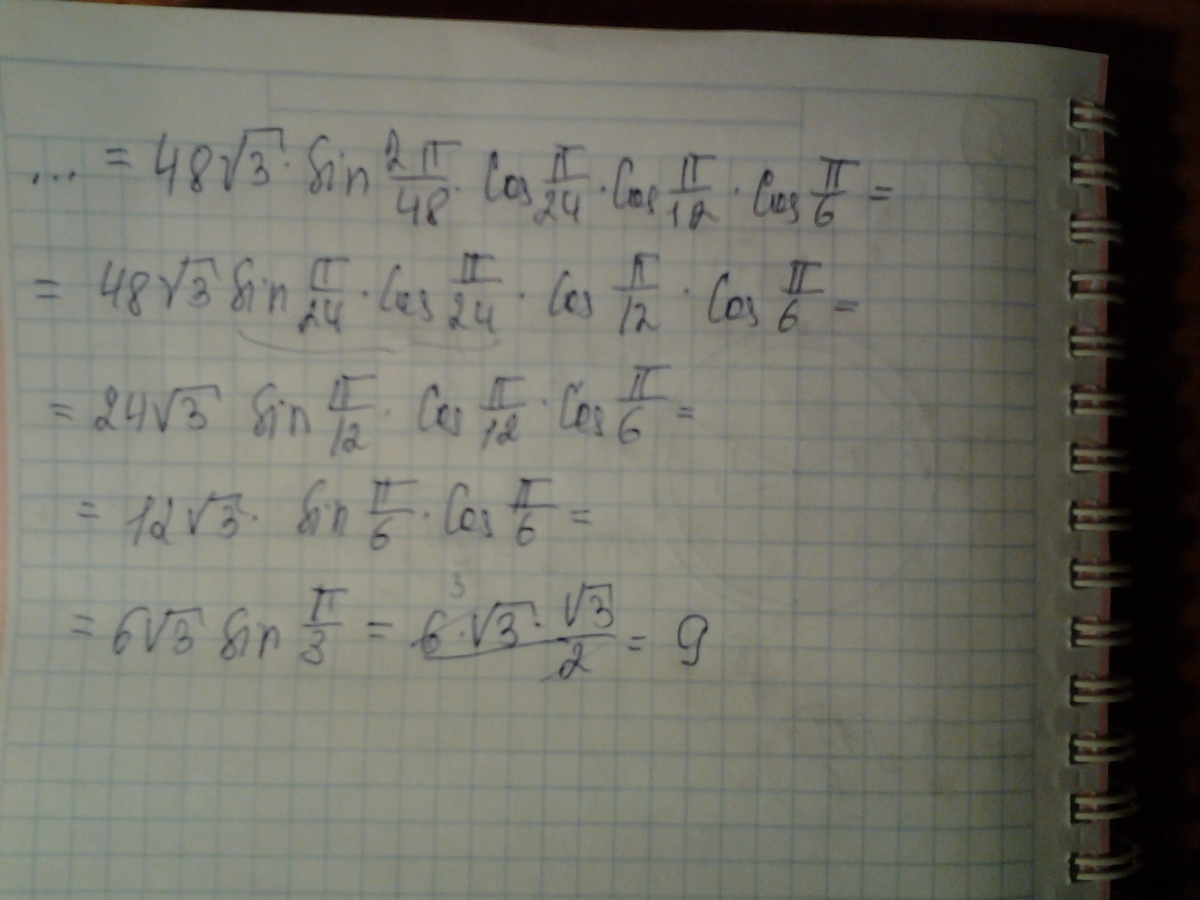 ... = 48√3 · sin 2π/48 · cos π/24 · cos π/12 · cos π/6 =
= 48√3 sin π/24 · cos π/24 · cos π/12 · cos π/6 =
= 24√3 sin π/12 · cos π/12 · cos π/6 =
= 12√3 · sin π/6 · cos π/6 =
3
= 6√3 sin π/3 = 6 · √3 · √3/2 = 9